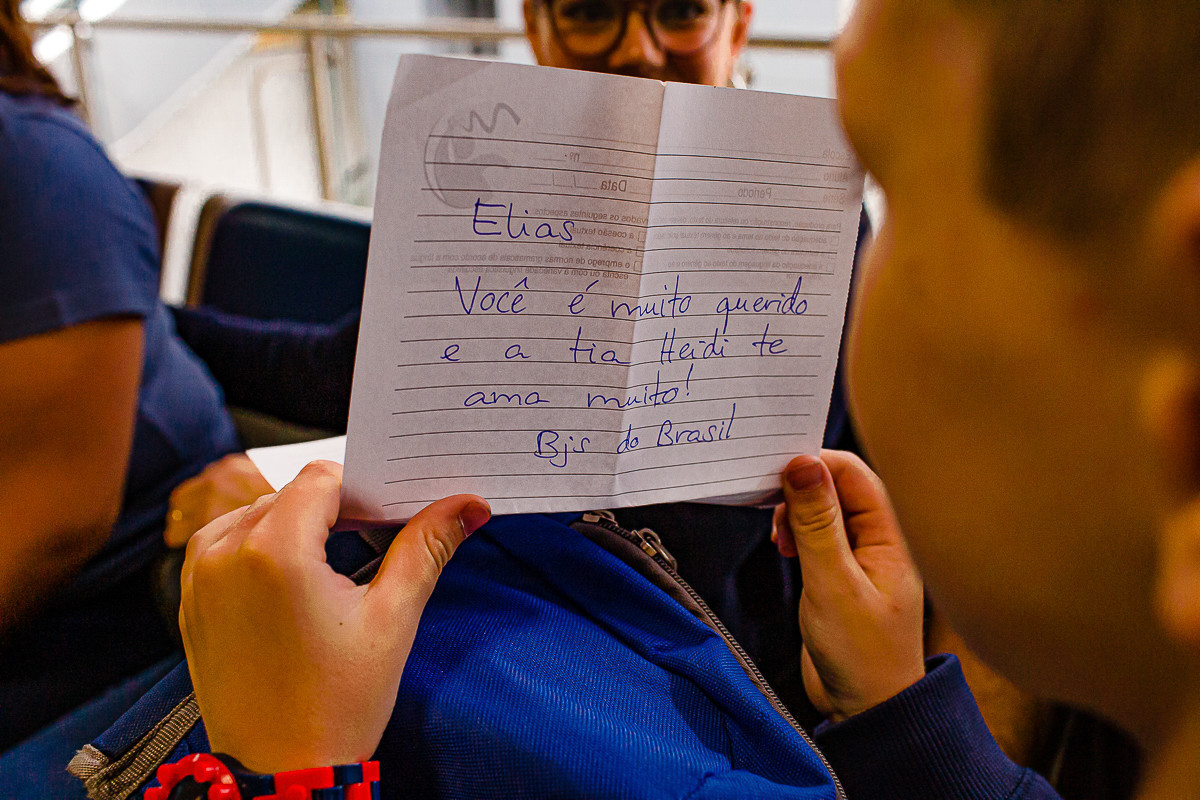 Elias
Você é muito querido
e a tia Heidi te
ama muito!
Bjs do Brasil